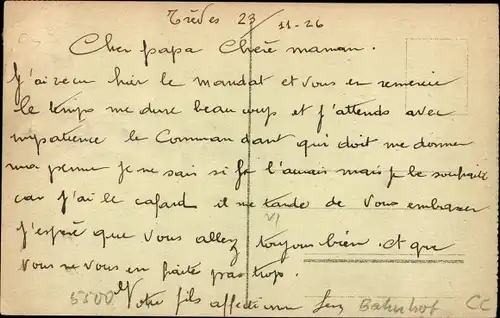 Trèves 23/11-26
Cher papa Chère maman.
J'ai recu hier le mandat et vous en remercie
le temps me dure beaucoup et j'attends avec
impatience le Commandant qui doit me donner
ma perme je ne sais si je l'aurais mais je le souhaite
car j'ai le cafard il me tarde de vous embrasser
VI
J'espère que vous allez toujours bien. et que
vous ne vous en faite pas trop.
Votre fils affectionné
5500 Bahnhof CC